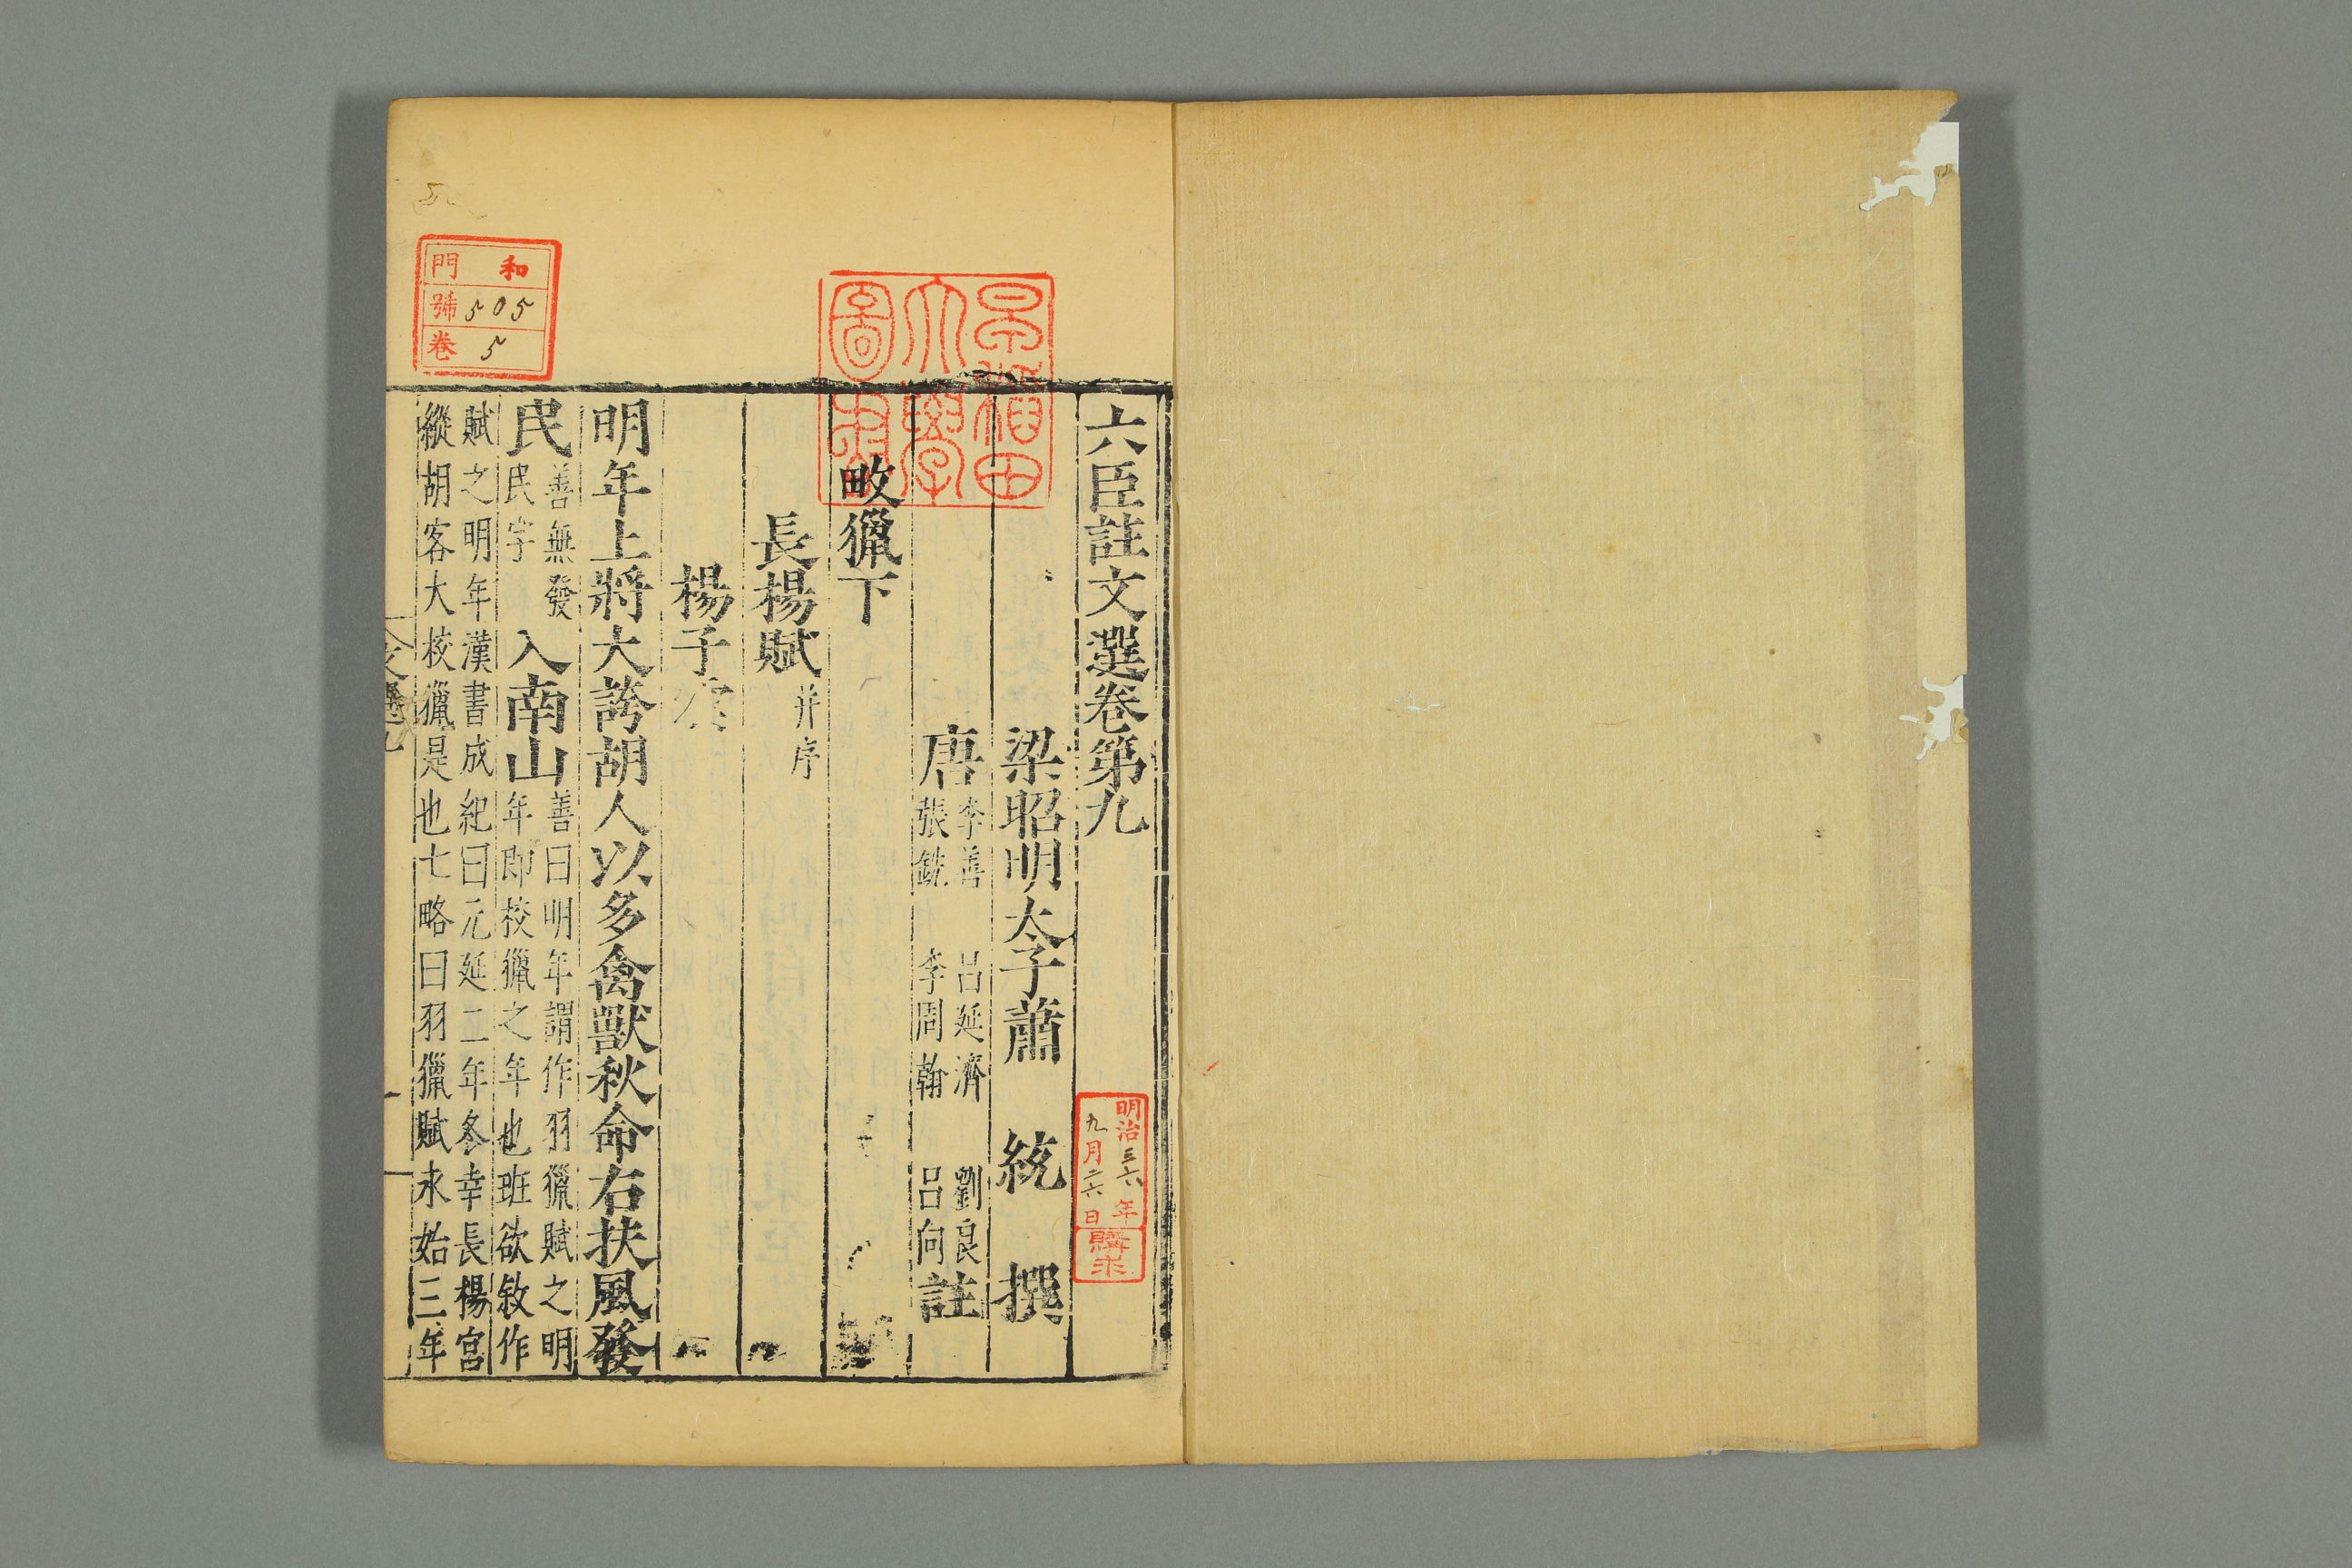 六臣註文選卷第九
梁昭明太子蕭 統 撰
唐李善 呂延濟 劉良
張銑 李周翰 呂向註
畋獵下
長楊賦并序
楊子雲
明年上將大誇胡人以多禽獸秋命右扶風發
民善無發民字入南山善曰明年謂作羽獵賦之明
年即校獵之年也班欲敘作
賦之明年漢書成紀曰元延二年冬幸長楊宮
縱胡客大校獵是也七略曰羽獵賦永始三年
早稻田大學圖書
和
門
號 505
卷 5
明治三六年
九月二六日
購求